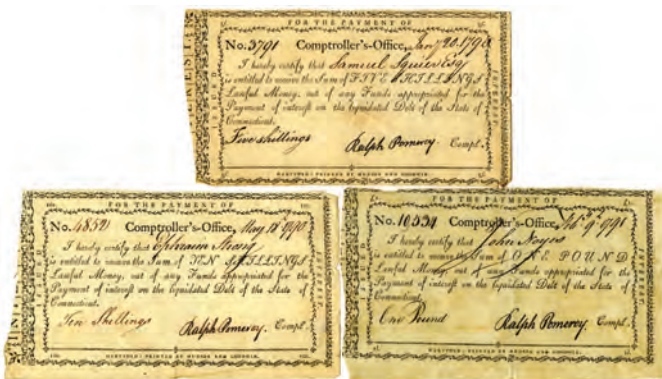 FOR THE PAYMENT OF
No. 3791 Comptroller's-Office, Jany 20. 1790
I hereby certify that Samuel Squier Esqr
is entitled to receive the Sum of FIVE SHILLINGS
Lawful Money, out of any Funds appropriated for the
Payment of interest on the liquidated Debt of the State of
Connecticut.
Five shillings Ralph Pomeroy. Compt.
HARTFORD: PRINTED BY HUDSON AND GOODWIN.
FOR THE PAYMENT OF
No. 4852 Comptroller's-Office, May 18 1790
I hereby certify that Ephraim Strong
is entitled to receive the Sum of TEN SHILLINGS
Lawful Money, out of any Funds appropriated for the
Payment of interest on the liquidated Debt of the State of
Connecticut.
Ten Shillings Ralph Pomeroy. Compt.
HARTFORD: PRINTED BY HUDSON AND GOODWIN.
FOR THE PAYMENT OF
No. 10334 Comptroller's-Office, Feb. 9 1791
I hereby certify that John Noyes
is entitled to receive the Sum of ONE POUND
Lawful Money, out of any Funds appropriated for the
Payment of interest on the liquidated Debt of the State of
Connecticut.
One Pound Ralph Pomeroy. Compt.
HARTFORD: PRINTED BY HUDSON AND GOODWIN.